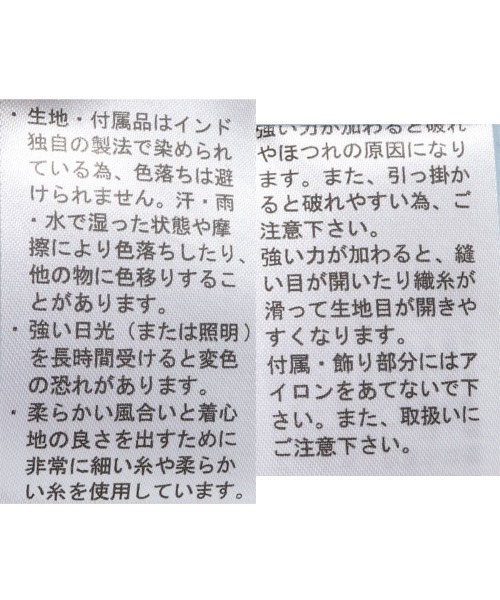 ・生地・付属品はインド
独自の製法で染められ
ている為、色落ちは避
けられません。汗・雨
・水で湿った状態や摩
擦により色落ちしたり、
他の物に色移りするこ
とがあります。
・強い日光（または照明）
を長時間受けると変色
の恐れがあります。
・柔らかい風合いと着心
地の良さを出すために
非常に細い糸や柔らか
い糸を使用しています。
強い力が加わると破れ
やほつれの原因になり
ます。また、引っ掛か
ると破れやすい為、ご
注意下さい。
強い力が加わると、縫
い目が開いたり織糸が
滑って生地目が開きや
すくなります。
付属・飾り部分にはア
イロンをあてないで下
さい。また、取扱いに
ご注意下さい。